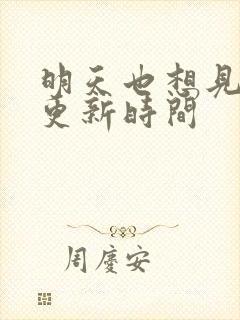 明天也想見
更新時間
周慶安